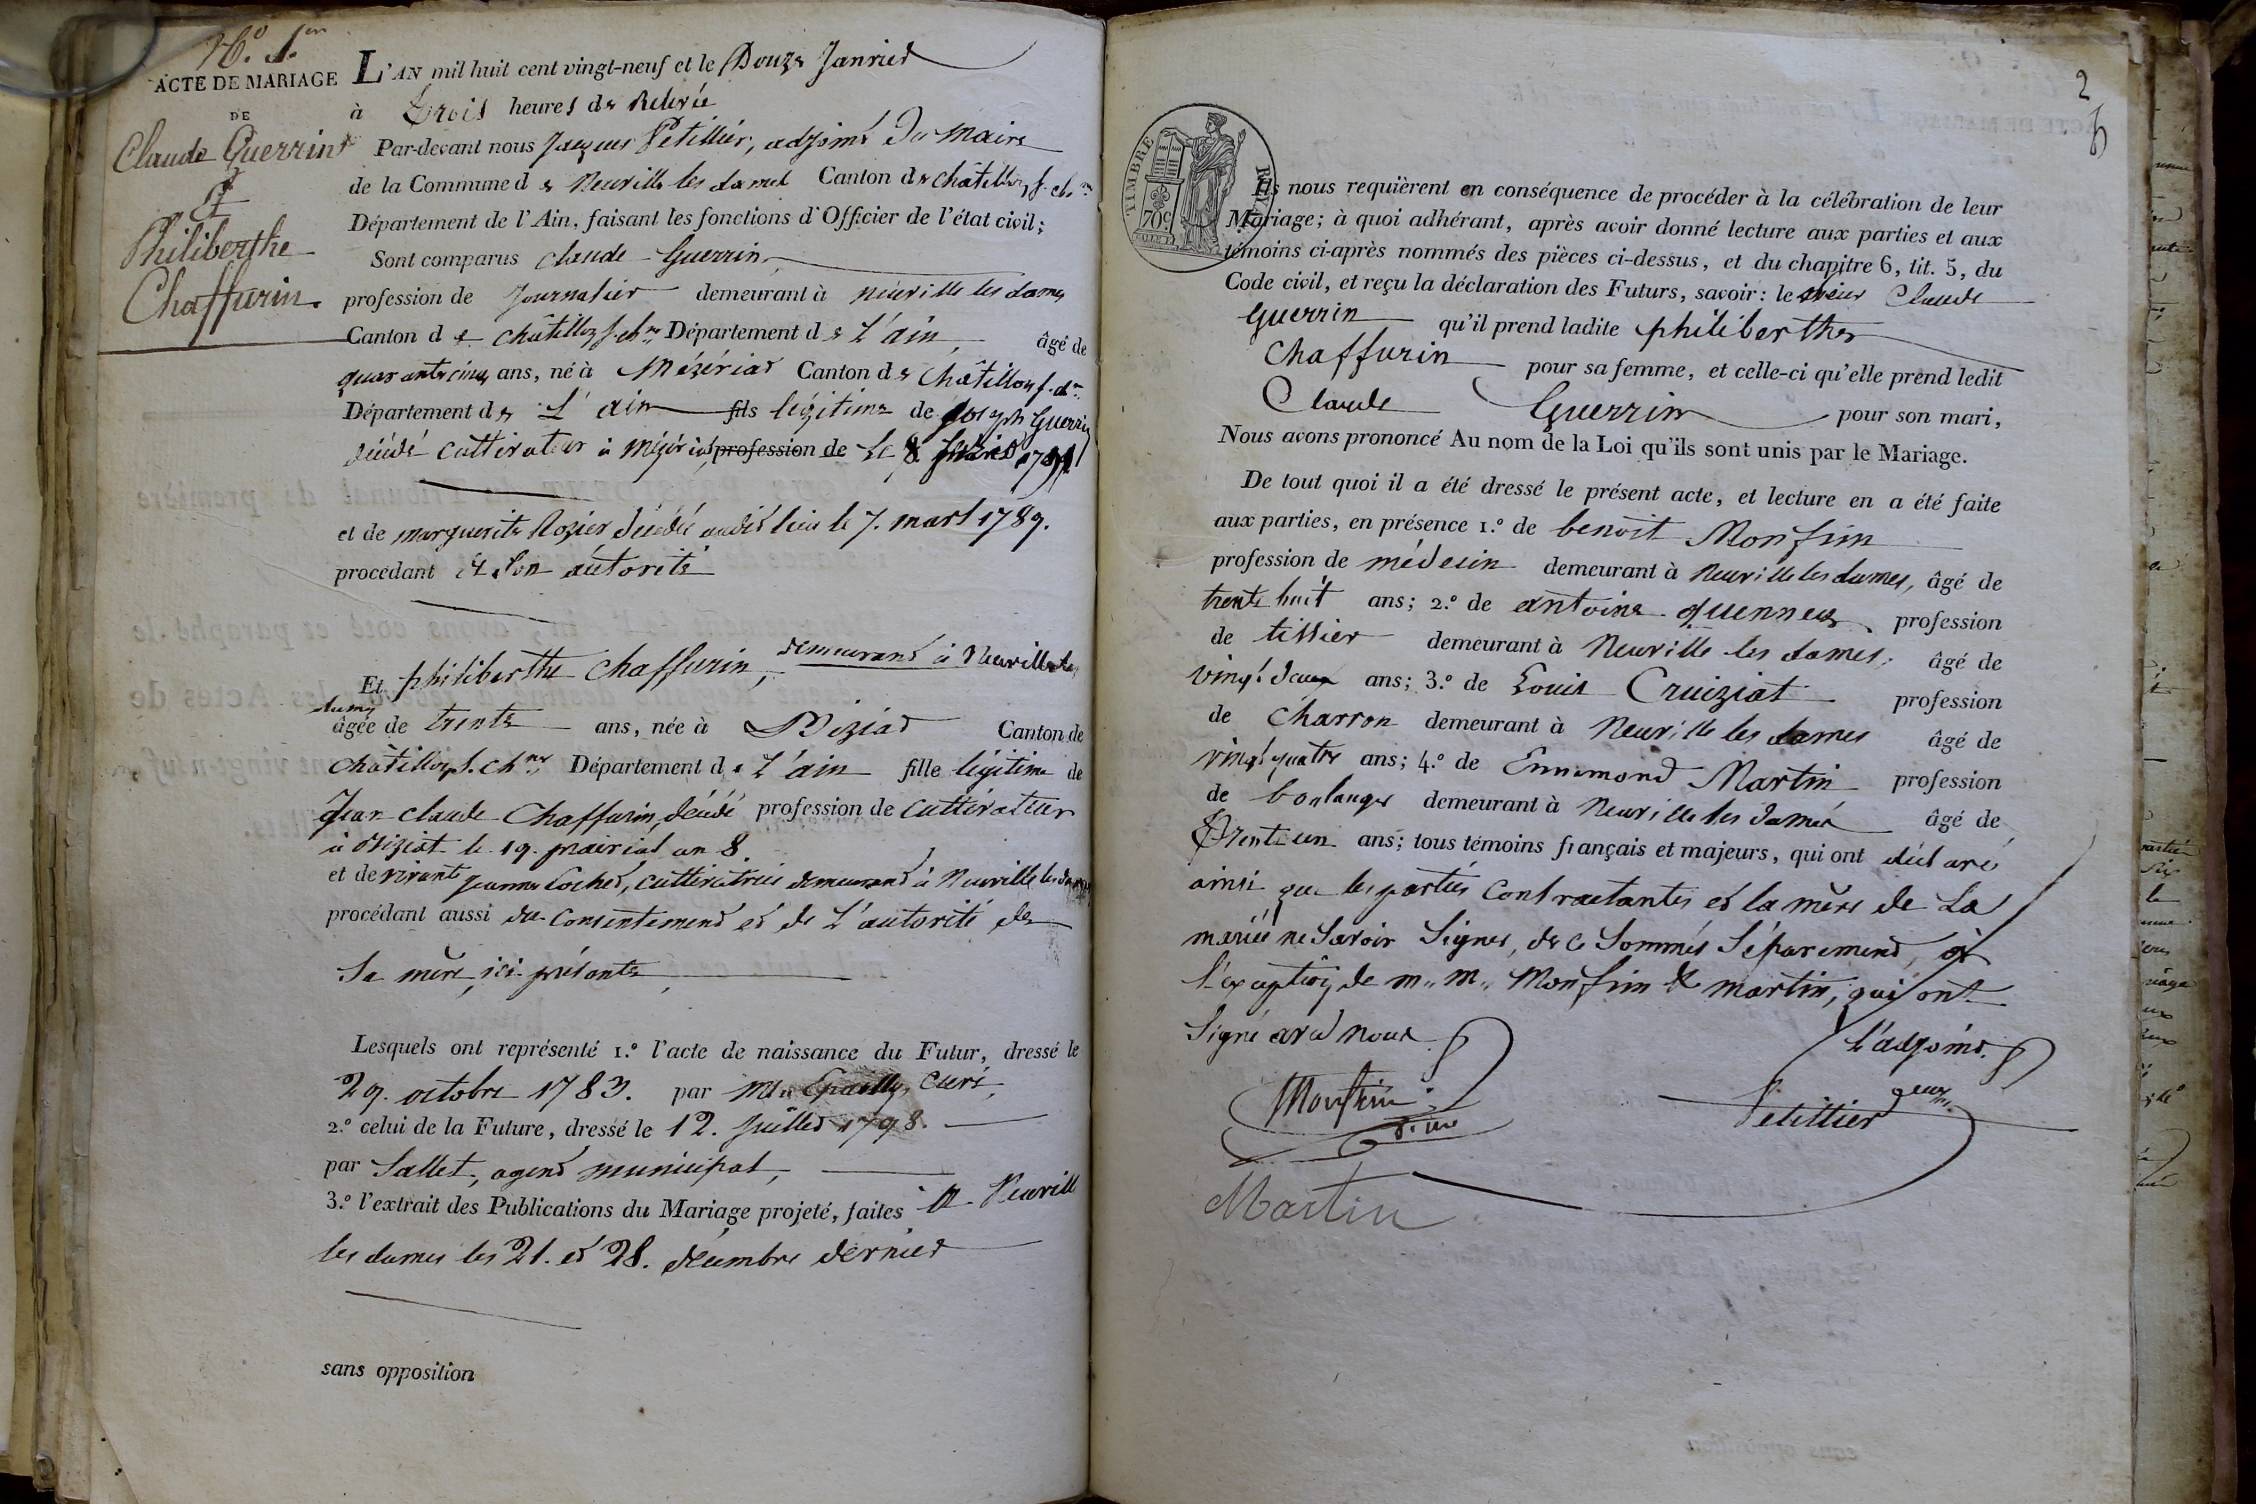 N.º 1.er
ACTE DE MARIAGE
DE
Claude Guerrin
Et
Philiberthe
Chaffurin.
L'AN mil huit cent vingt-neuf et le Douze Janvier
à trois heures de Relevée
Par-devant nous Jacques Petillier, adjoint du maire
de la Commune de Neuville les dames Canton de Châtillon s. ch.ne
Département de l'Ain, faisant les fonctions d'Officier de l'état civil;
Sont comparus Claude Guerrin,
profession de Journalier demeurant à neuville les dames
Canton de Châtillon s. ch.ne Département de L'ain, âgé de
quarante cinq ans, né à Mézériat Canton de Châtillon s. d.
Département de L'ain fils légitime de Joseph Guerrin
décédé cultivateur à Mézériat, profession de Le 8
et de marguerite Rozier décédée audit lieu le 7. mars 1789.
procédant de son autorité
Et philiberthe Chaffurin, demeurant à Neuville les
dames
âgée de trente ans, née à Biziat Canton de
Châtillon s. ch.ne Département de L'ain fille légitime de
Jean claude Chaffurin, décédé profession de cultivateur
à Biziat le 19. prairial an 8.
et de vivante jeanne Cochet, cultivatrice demeurant à Neuville les dames
procédant aussi du consentement et de L'autorité de
Sa mère, ici présente,
Lesquels ont représenté 1.º l'acte de naissance du Futur, dressé le
29. octobre 1783. par Mr. curé,
2.º celui de la Future, dressé le 12. Juillet 1798.
par Sallet, agent municipal,
3.º l'extrait des Publications du Mariage projeté, faites à Neuville
les dames les 21. et 28. décembre dernier
sans opposition
2
TIMBRE ROYAL
70c
Ils nous requièrent en conséquence de procéder à la célébration de leur
Mariage; à quoi adhérant, après avoir donné lecture aux parties et aux
témoins ci-après nommés des pièces ci-dessus, et du chapitre 6, tit. 5, du
Code civil, et reçu la déclaration des Futurs, savoir: le sieur Claude
Guerrin qu'il prend ladite philiberthe
Chaffurin pour sa femme, et celle-ci qu'elle prend ledit
Claude Guerrin pour son mari,
Nous avons prononcé Au nom de la Loi qu'ils sont unis par le Mariage.
De tout quoi il a été dressé le présent acte, et lecture en a été faite
aux parties, en présence 1.º de benoit Monfrin
profession de médecin demeurant à Neuville les dames, âgé de
trente huit ans; 2.º de antoine profession
de tissier demeurant à Neuville les dames, âgé de
vingt deux ans; 3.º de Louis Cruiziat profession
de charron demeurant à Neuville les dames âgé de
vingt quatre ans; 4.º de Ennemond Martin profession
de boulanger demeurant à Neuville les dames âgé de
Trente un ans; tous témoins français et majeurs, qui ont déclaré
ainsi que les parties contractantes et la mère de La
mariée ne Savoir Signer, de ce Sommés Séparement, à
l'exception de m.. m.. Monfrin & martin, qui ont
Signé avec nous.
L'adjoint.
Monfrin
Petillier
Martin